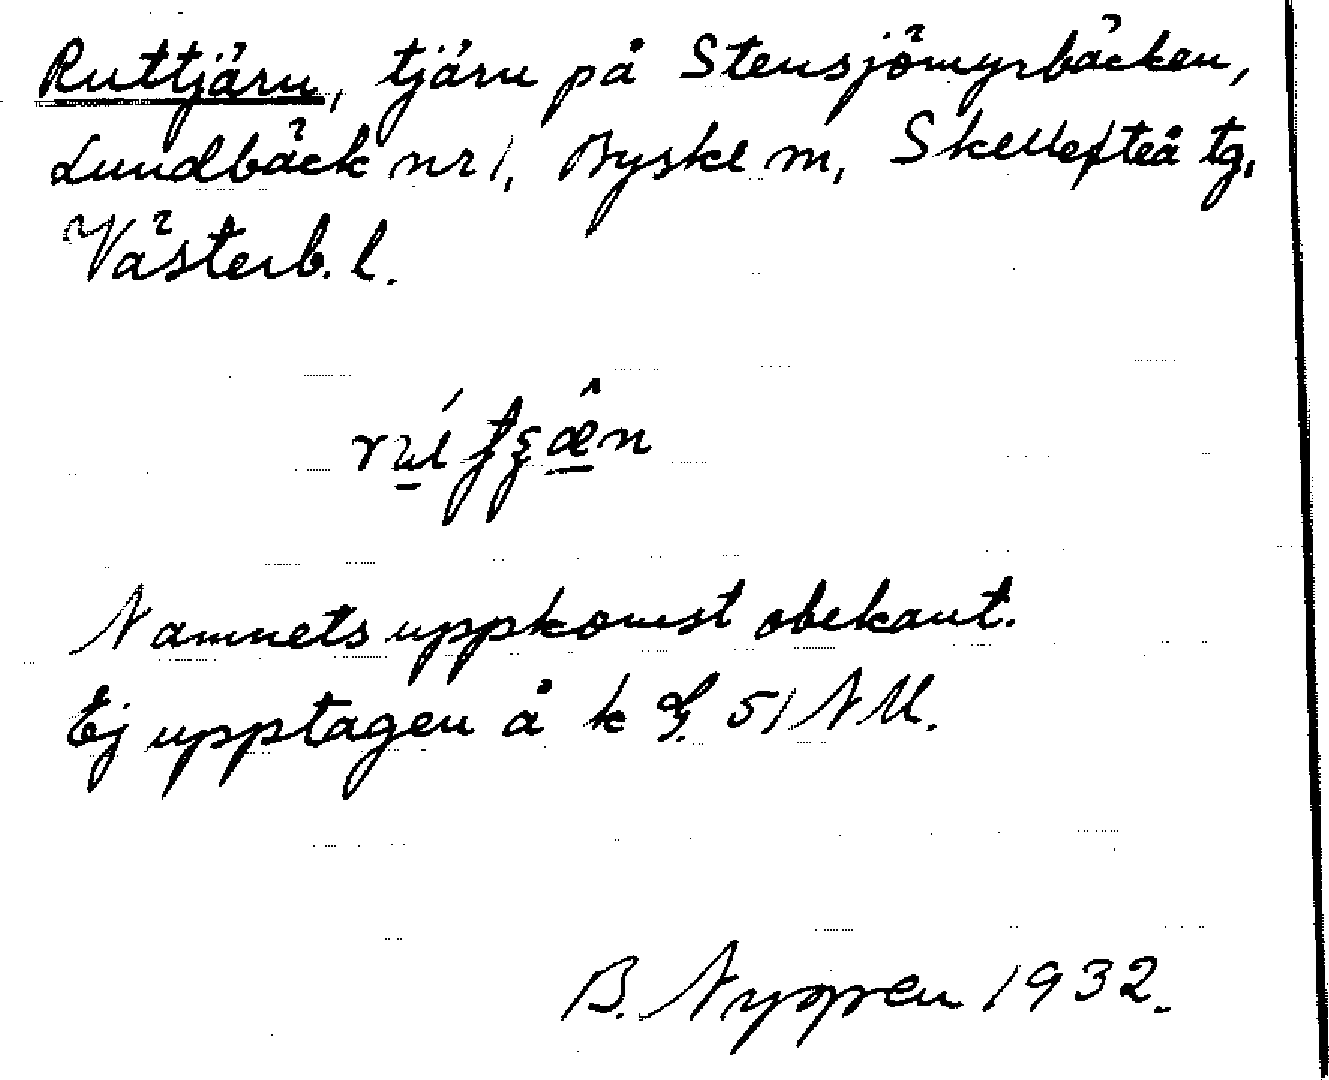 Ruttjärn, tjärn på Stensjömyrbäcken,
Lundbäck nr 1, Byske m, Skellefteå tg,
Västerb. l.
Namnets uppkomst obekant.
Ej upptagen å k G. 51 NU.
B. Nygren 1932.